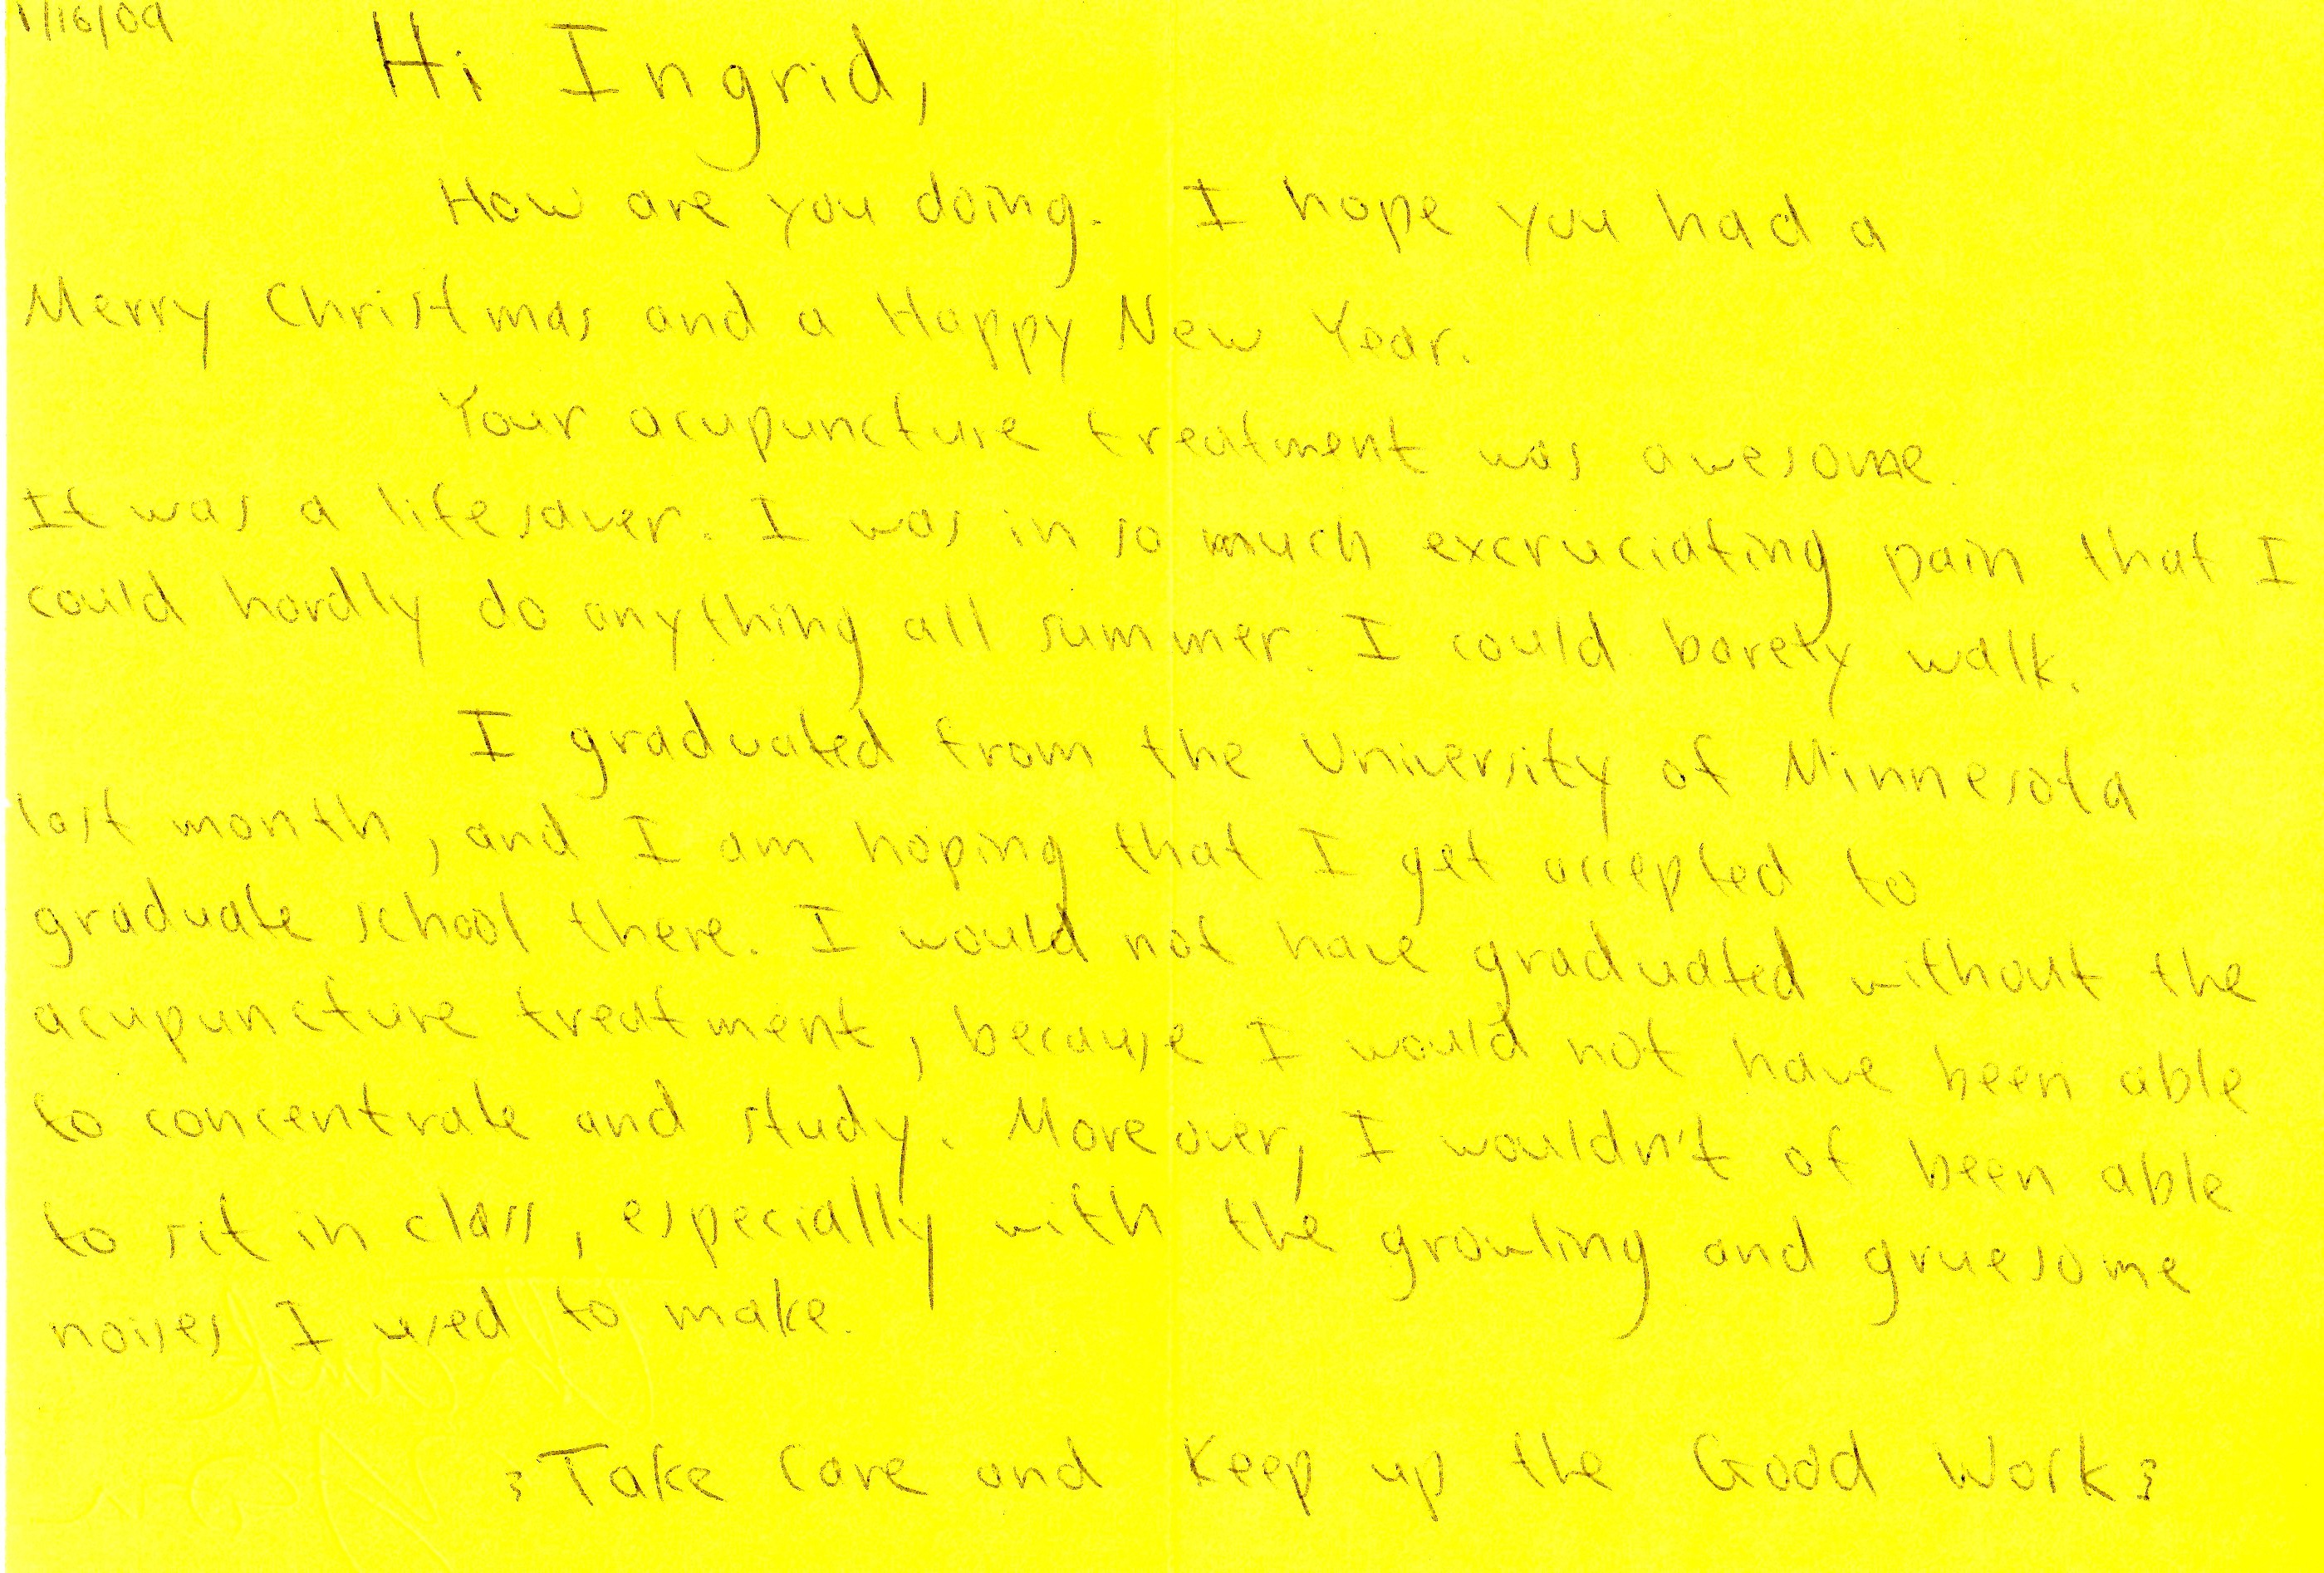 1/16/09
Hi Ingrid,
How are you doing. I hope you had a
Merry Christmas and a Happy New Year.
Your acupuncture treatment was awesome.
It was a lifesaver. I was in so much excruciating pain that I
could hardly do anything all summer. I could barely walk.
I graduated from the University of Minnesota
last month, and I am hoping that I get accepted to
graduate school there. I would not have graduated without the
acupuncture treatment, because I would not have been able
to concentrate and study. Moreover, I wouldn't of been able
to sit in class, especially with the growling and gruesome
noises I used to make.
Take Care and Keep up the Good Work